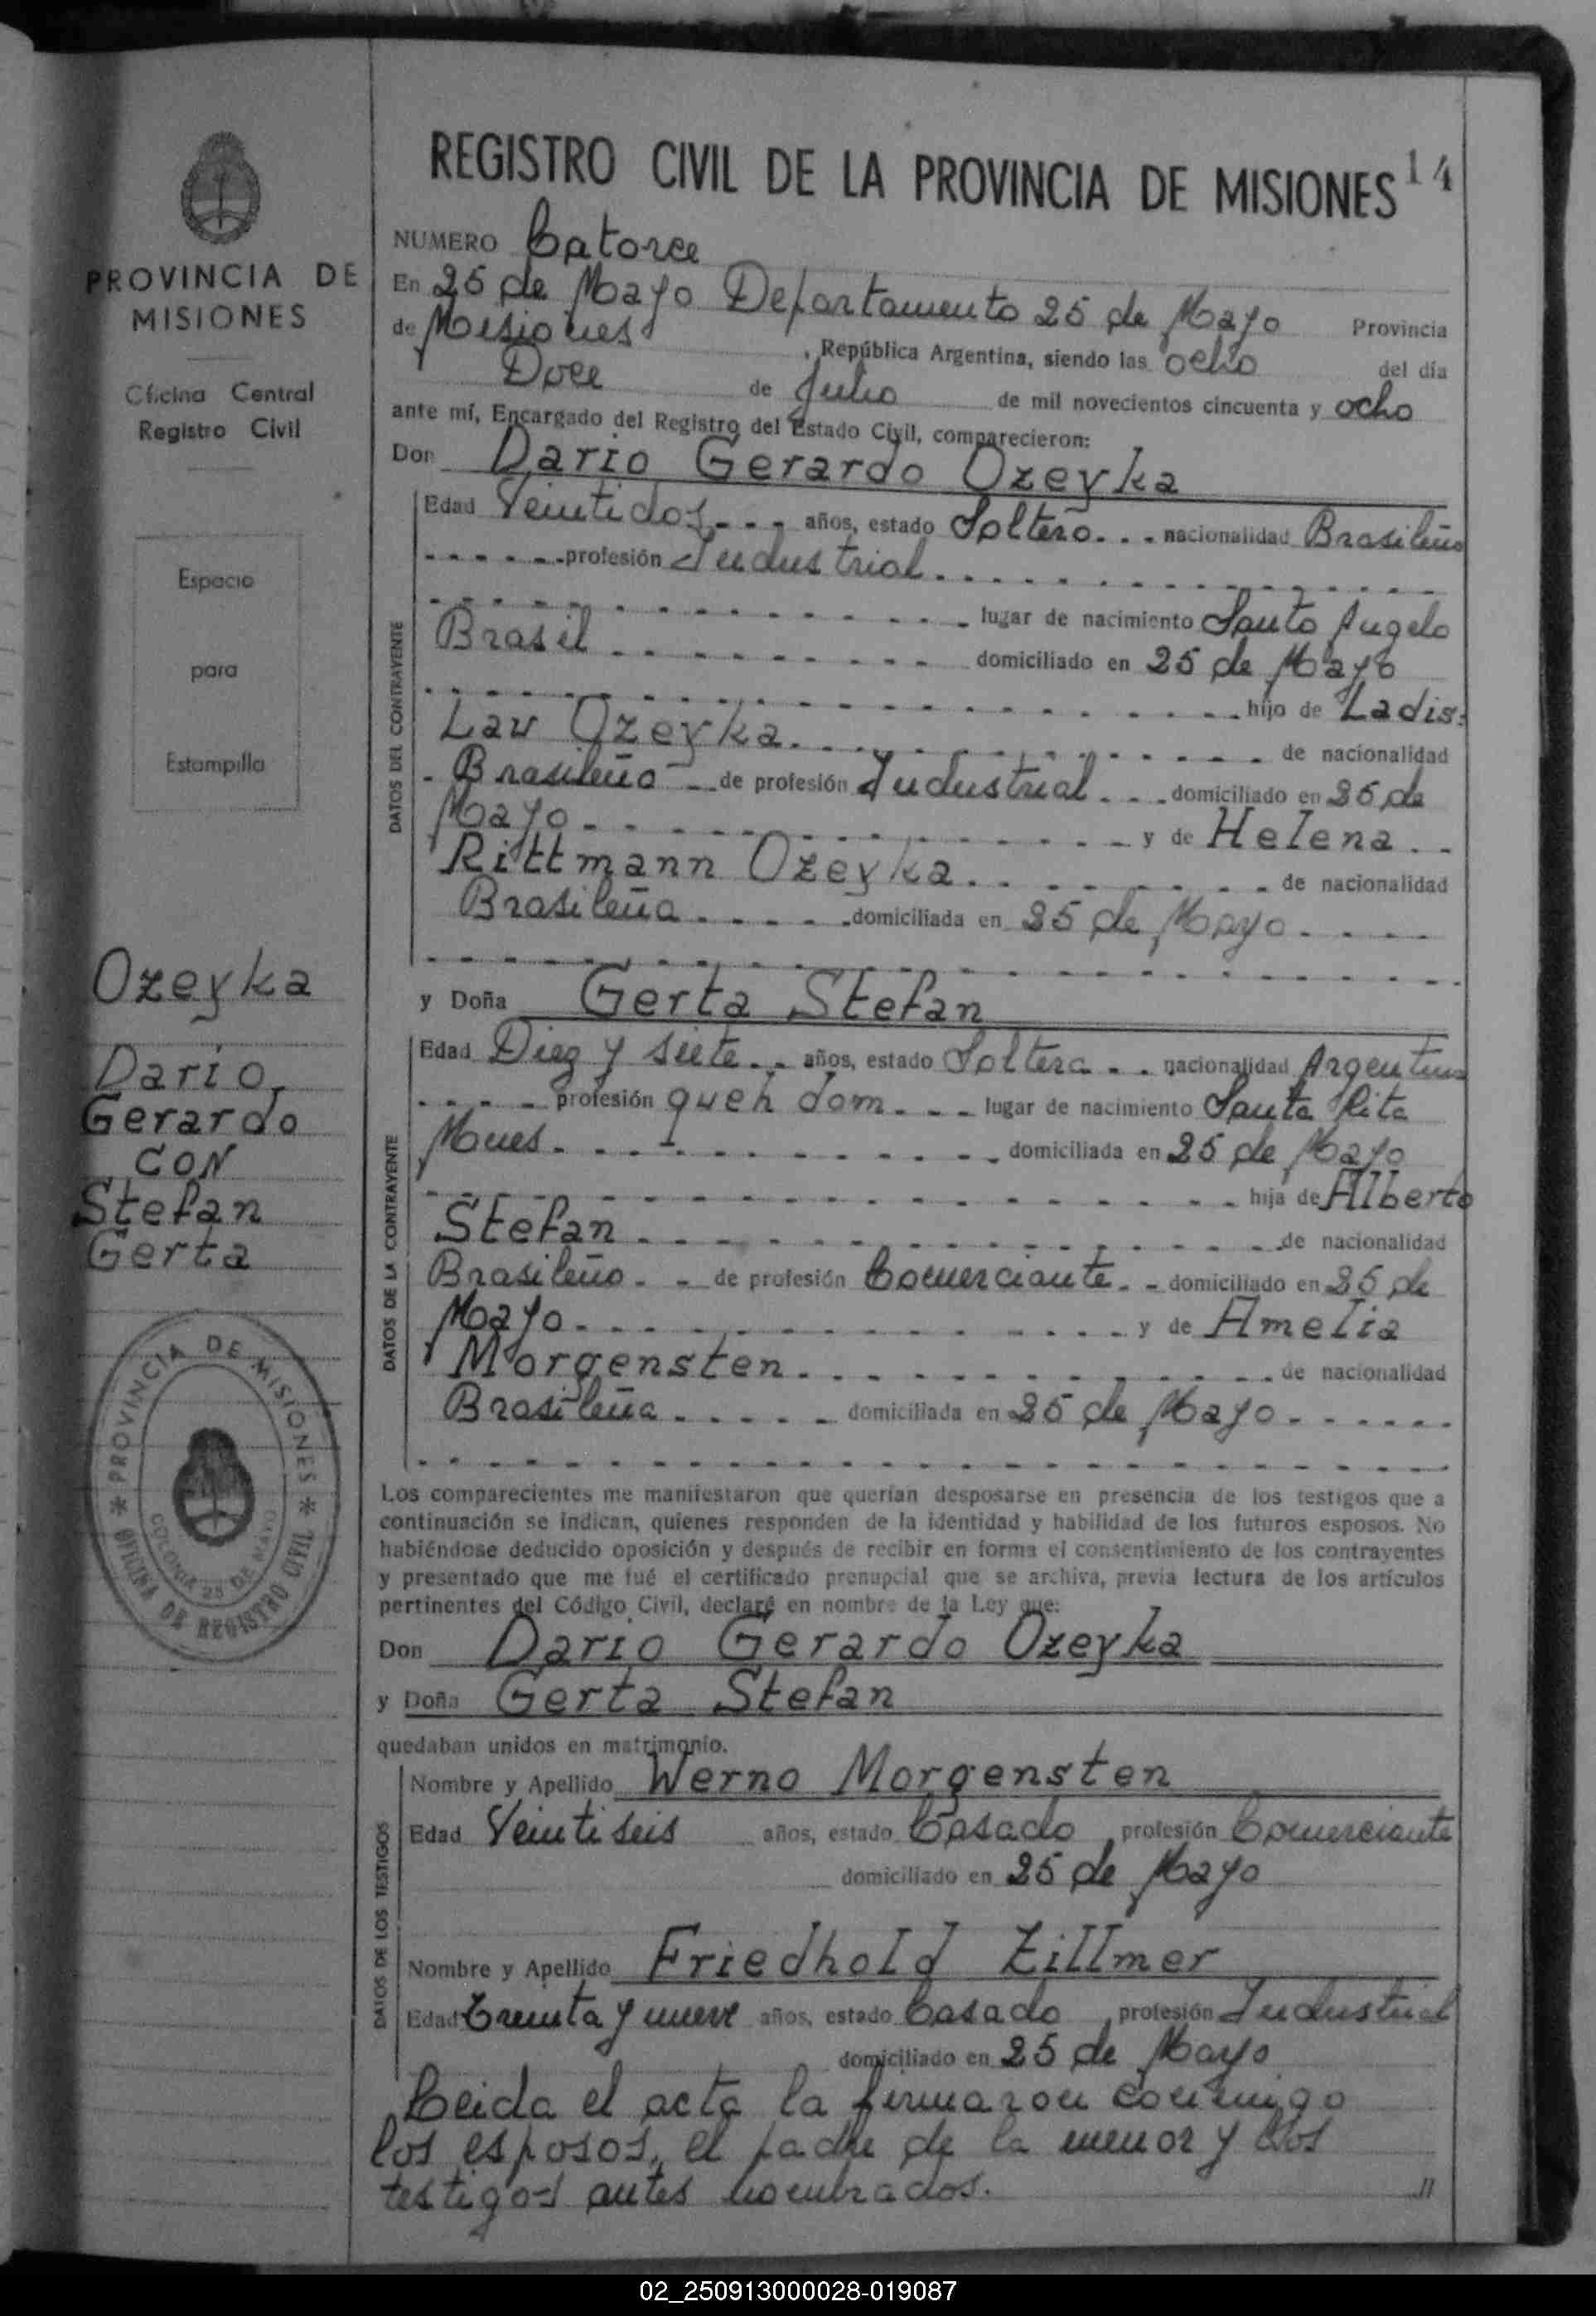 REGISTRO CIVIL DE LA PROVINCIA DE MISIONES 14
NUMERO Catorce
En 25 de Mayo Departamento 25 de Mayo Provincia
de Misiones, República Argentina, siendo las ocho del día
Doce de Julio de mil novecientos cincuenta y ocho
ante mí, Encargado del Registro del Estado Civil, comparecieron:
Don Dario Gerardo Ozeyka
Edad Veintidos años, estado Soltero nacionalidad Brasileño
profesión Industrial
lugar de nacimiento Santo Angelo
Brasil domiciliado en 25 de Mayo
hijo de Ladis:
Lau Ozeyka de nacionalidad
Brasileño de profesión Industrial domiciliado en 25 de
Mayo y de Helena
Rittmann Ozeyka de nacionalidad
Brasileña domiciliada en 25 de Mayo
y Doña Gerta Stefan
Edad Diez y siete años, estado Soltera nacionalidad Argentina
profesión queh dom lugar de nacimiento Santa Rita
Mnes domiciliada en 25 de Mayo
hija de Alberto
Stefan de nacionalidad
Brasileño de profesión Comerciante domiciliado en 25 de
Mayo y de Amelia
Morgensten de nacionalidad
Brasileña domiciliada en 25 de Mayo
Los comparecientes me manifestaron que querían desposarse en presencia de los testigos que a
continuación se indican, quienes responden de la identidad y habilidad de los futuros esposos. No
habiéndose deducido oposición y después de recibir en forma el consentimiento de los contrayentes
y presentado que me fué el certificado prenupcial que se archiva, previa lectura de los artículos
pertinentes del Código Civil, declaré en nombre de la Ley que:
Don Dario Gerardo Ozeyka
y Doña Gerta Stefan
quedaban unidos en matrimonio.
Nombre y Apellido Werno Morgensten
Edad Veintiseis años, estado Casado profesión Comerciante
domiciliado en 25 de Mayo
Nombre y Apellido Friedhold Zillmer
Edad Treinta y nueve años, estado Casado profesión Industrial
domiciliado en 25 de Mayo
Leida el acta la firmaron conmigo
los esposos, el padre de la menor y los
testigos antes nombrados. //
DATOS DEL CONTRAYENTE
DATOS DE LA CONTRAYENTE
DATOS DE LOS TESTIGOS
PROVINCIA DE
MISIONES
Oficina Central
Registro Civil
Espacio
para
Estampilla
Ozeyka
Dario
Gerardo
CON
Stefan
Gerta
PROVINCIA DE MISIONES
COLONIA 25 DE MAYO
OFICINA DE REGISTRO CIVIL
02_250913000028-019087